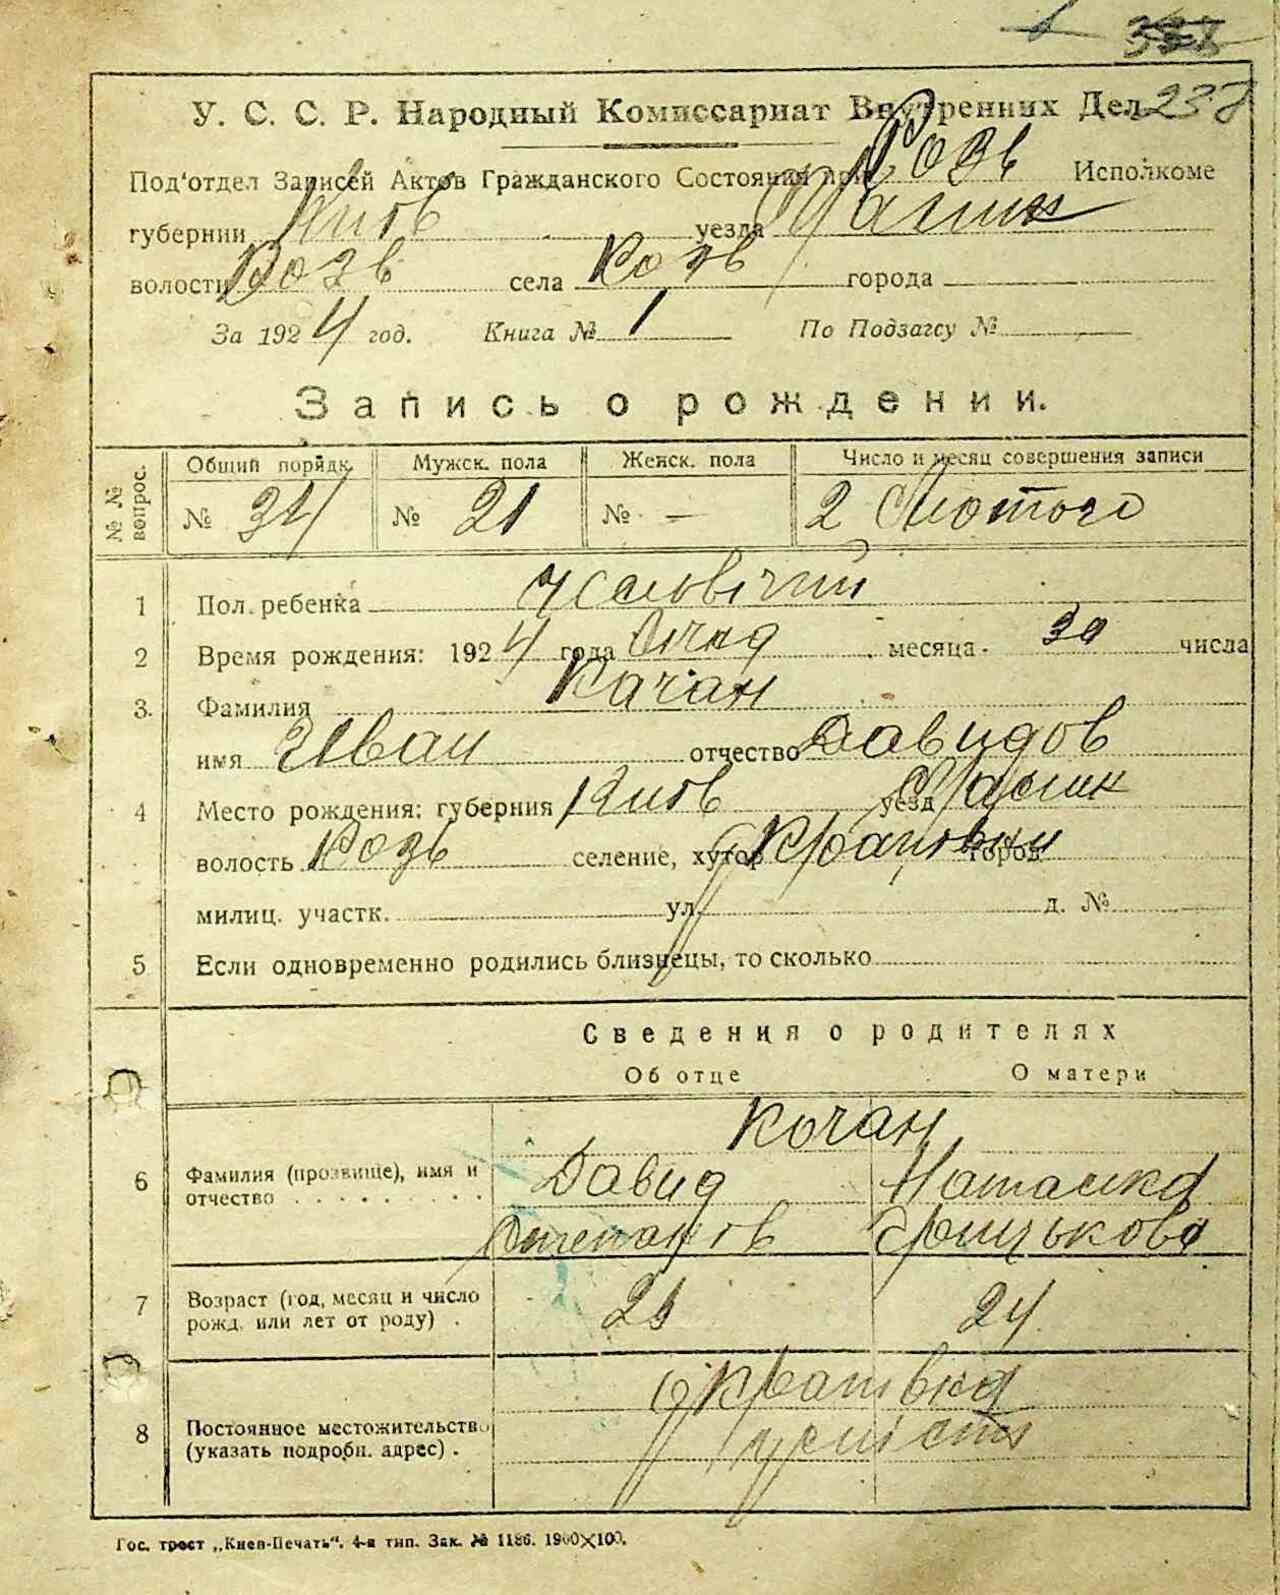 238
У. С. С. Р. Народный Комиссариат Внутренних Дел
Под'отдел Записей Актов Гражданского Состояния при Розв Исполкоме
губернии Киів уезда Таращ
волости Розв села Розв города
За 1924 год. Книга № 1 По Подзагсу №
Запись о рождении.
№№ вопрос. Общий порядк. Мужск. пола Женск. пола Число и месяц совершения записи
№ 34 № 21 № — 2 Лютого
1 Пол. ребенка Чсловічий
2 Время рождения: 1924 года Січня месяца 30 числа
3. Фамилия Качан
имя Иван отчество Давидов
4 Место рождения: губерния Київ уезд
волость Розв селение, хутор город
милиц. участк. ул. д. №
5 Если одновременно родились близнецы, то сколько
Сведения о родителях
Об отце О матери
Кочан
6 Фамилия (прозвище), имя и отчество Давид Наталка
Степанов Грицькова
7 Возраст (год, месяц и число рожд. или лет от роду) . 24
8 Постоянное местожительство (указать подробн. адрес) .
Гос. трест „Киев-Печать“. 4-я тип. Зак. № 1186. 1900×100.